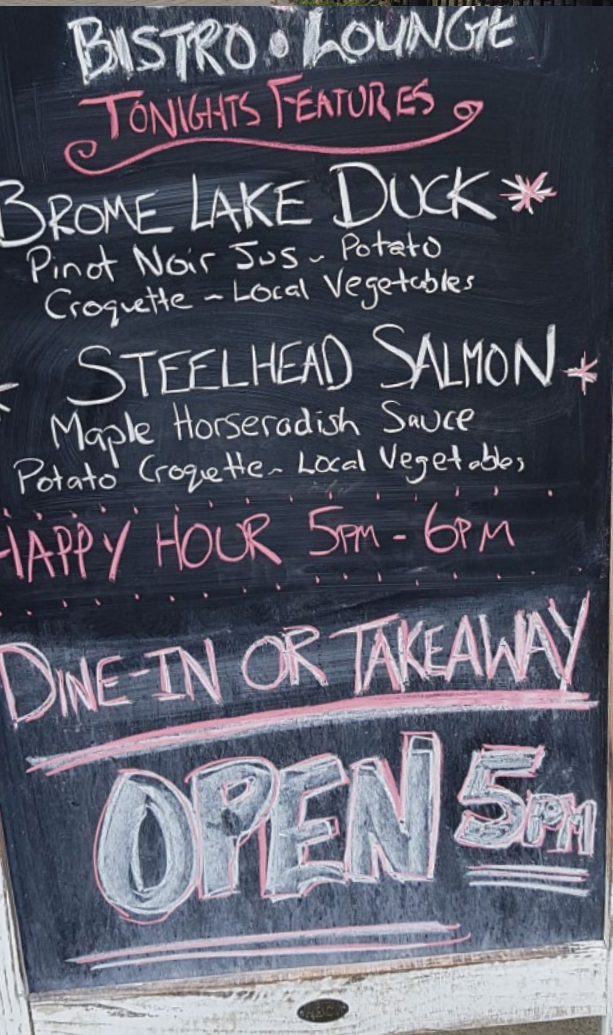 BISTRO • LOUNGE
TONIGHTS FEATURES
BROME LAKE DUCK *
Pinot Noir Jus ~ Potato
Croquette ~ Local Vegetables
* STEELHEAD SALMON *
Maple Horseradish Sauce
Potato Croquette ~ Local Vegetables
HAPPY HOUR 5PM - 6PM
DINE-IN OR TAKEAWAY
OPEN 5PM